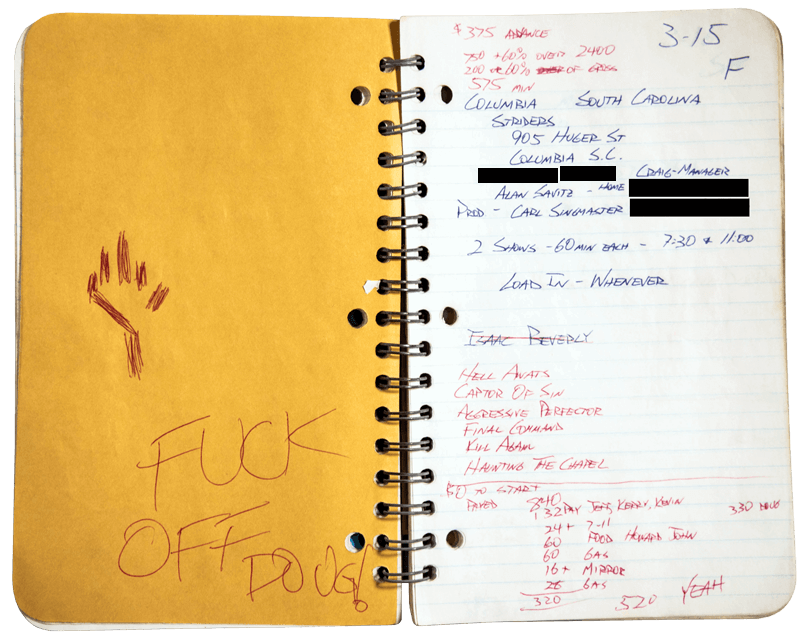 FUCK
OFF
DOUG!
$375 ADVANCE
3-15
F
750 + 60% OVER 2400
200 or 60% OF GROSS
575 MIN
COLUMBIA SOUTH CAROLINA
STRIDERS
905 HUGER ST
COLUMBIA S.C.
CRAIG-MANAGER
ALAN SAVITZ - HOME
PROD - CARL SINGMASTER
2 SHOWS - 60 MIN EACH - 7:30 & 11:00
LOAD IN - WHENEVER
ISAAC BEVERLY
HELL AWATS
CAPTOR OF SIN
AGGRESSIVE PERFECTOR
FINAL COMMAND
KILL AGAIN
HAUNTING THE CHAPEL
50 TO START
PAYED 840
132 PAY JEFF, KERRY, KEVIN 330 DOUG
24+ 7-11
60 FOOD HOWARD JOHN
60 GAS
16+ MIRROR
28 GAS
320 520 YEAH